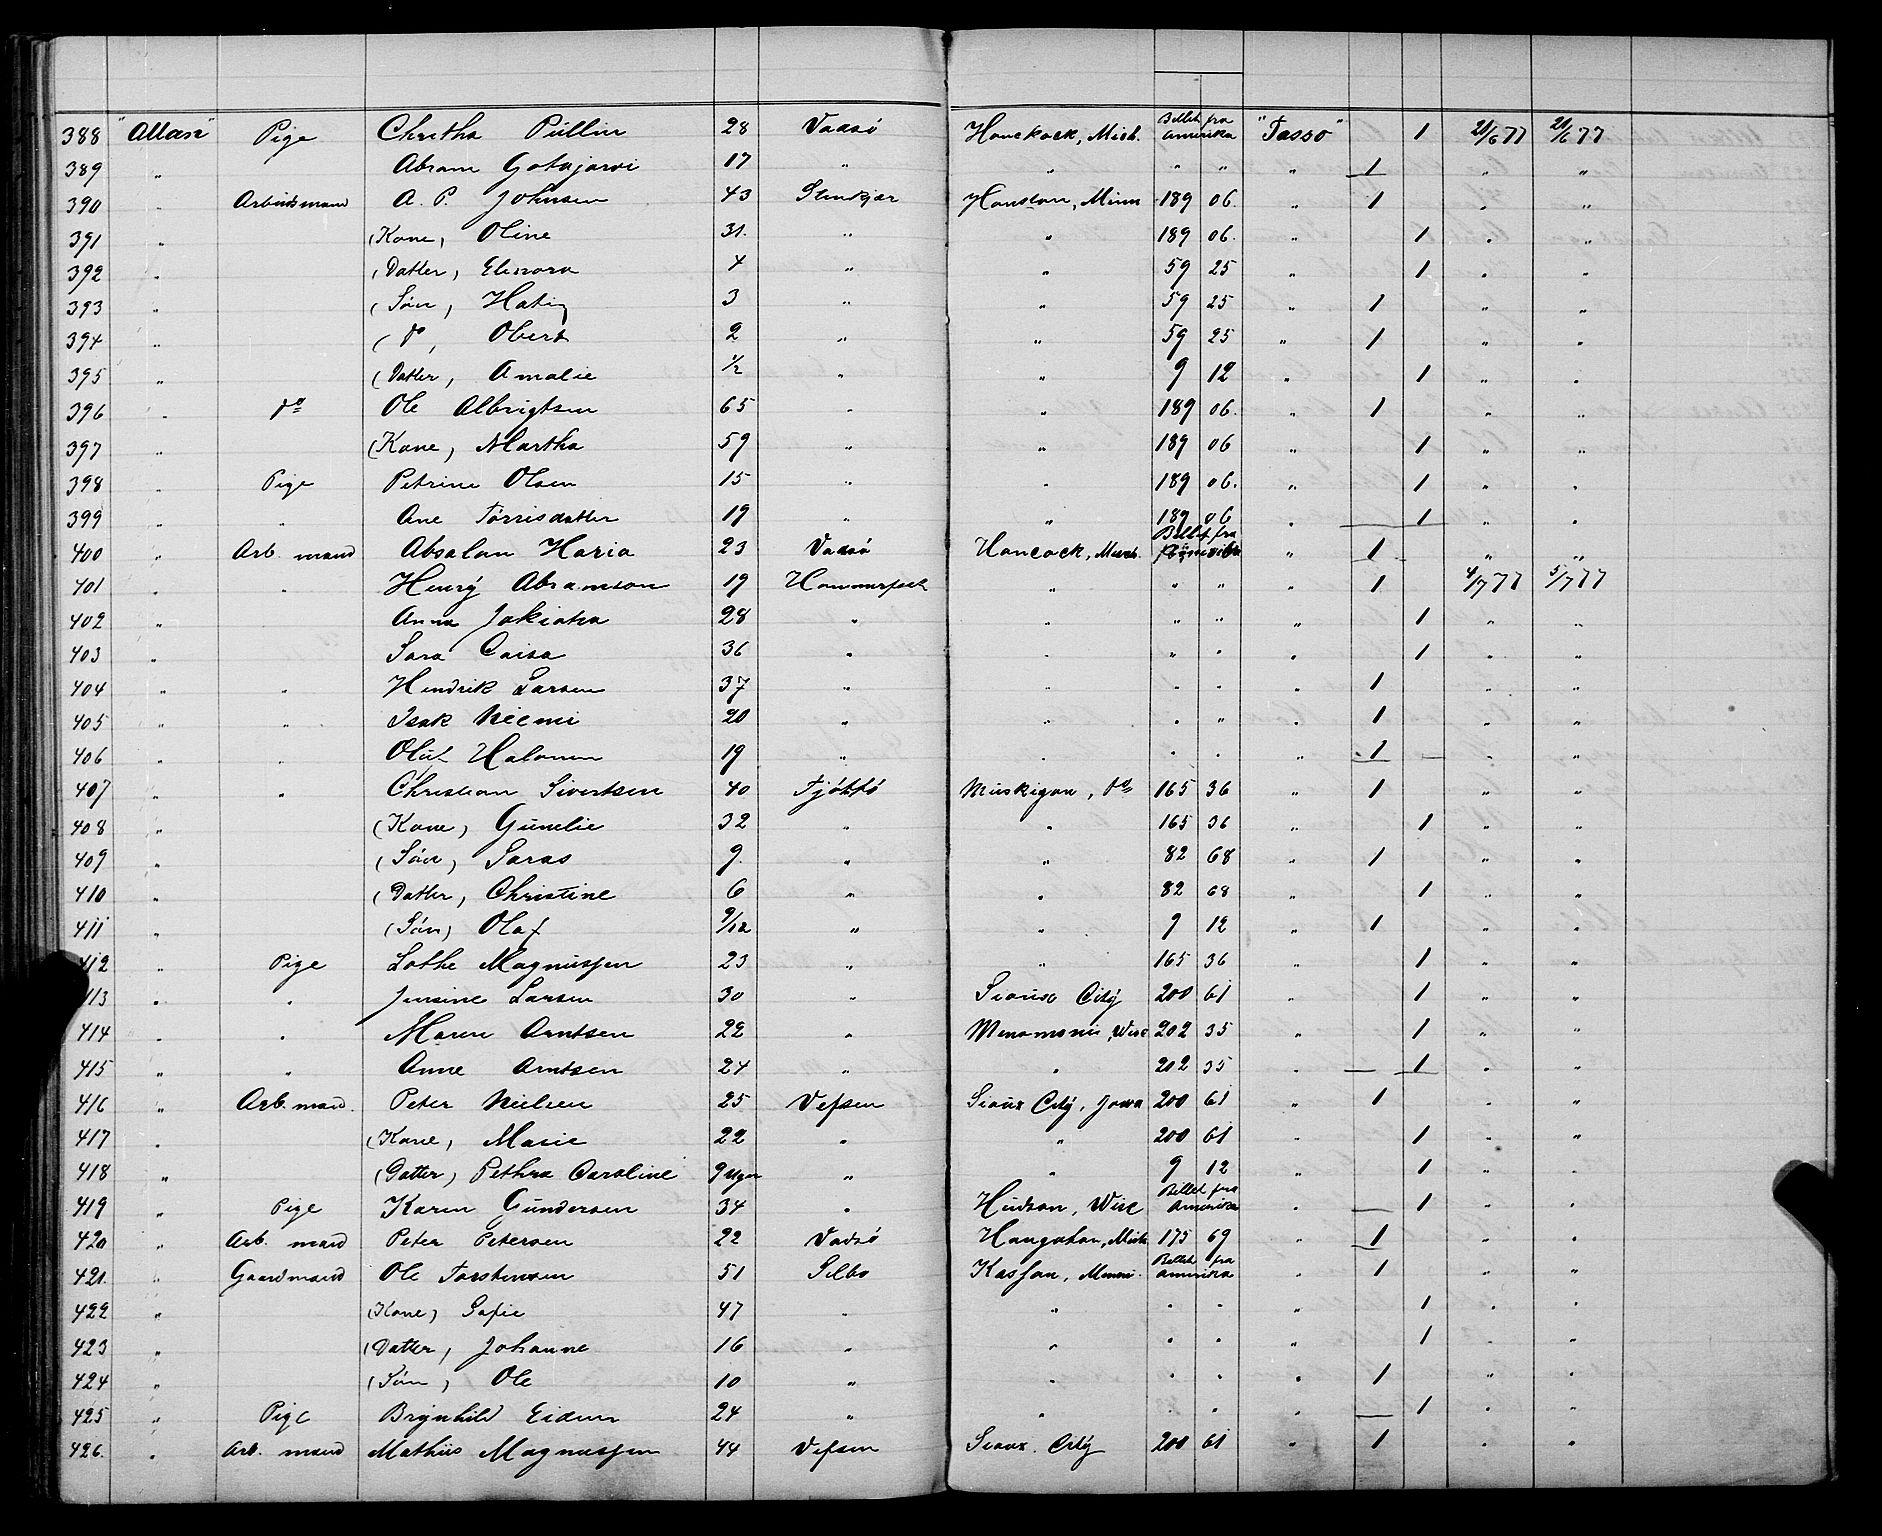 388 "Allan" Pige Chretha Pullin 28 Vadsö Hanckock, Mich. Billet fra Amerika "Tasso" 1 21/6 77 21/6 77
389 " Abram Gotajarvi 17 " " " " " 1 " "
390 " Arbeidsmand A. P. Johnsen 43 Stenkjær Houston, Minn 189 06. " 1 " "
391 " (Kone, Oline 31. " " 189 06. " 1 " "
392 " (Datter, Elenora 4 " " 59 25 " 1 " "
393 " (Søn, 3 " " 59 25 " 1 " "
394 " (do, Obert 2 " " 59 25 " 1 " "
395 " (Datter, Amalie 1/2 " " 9 12 " 1 " "
396 " do Ole Albrigtsen 65 " " 189 06. " 1 " "
397 " (Kone, Martha 59 " " 189 06 " 1 " "
398 " Pige Petrine Olsen 15 " " 189 06. " 1 " "
399 " " Ane Torrisdatter 19 " " 189 06 " 1 " "
400 " Arb. mand Absalon Haria 23 Vadsö Hancock, Mich. Billet fra Amerika " 1 " "
401 " " Henrÿ Abramson 19 Hammerfest " " " " 1 4/7 77 5/7 77
402 " Anna 28 " " " " " 1 " "
403 " Sara Caisa 36 " " " " " 1 " "
404 " " Hendrik Larsen 37 " " " " " 1 " "
405 " " Isak Niemi 20 " " " " " 1 " "
406 " " Oluf Halonen 19 " " " " " 1 " "
407 " " Christian Sivertsen 40 Tjöttö Muskigon, do 165 36 " 1 " "
408 " (Kone, Gunelie 32 " " 165 36 " 1 " "
409 " (Søn, Saras 9 " " 82 68 " 1 " "
410 " (Datter, Christine 6 " " 82 68 " 1 " "
411 " (Søn, Olaf 9/12 " " 9 12 " 1 " "
412 " Pige Lothe Magnussen 23 " " 165 36 " 1 " "
413 " " Jensine Larsen 30 " Sioux Citÿ 200 61 " 1 " "
414 " " Maren Arntsen 22 " Menomonie, Wisc 202 35 " 1 " "
415 " " Anne Arntsen 24 " " 202 35 " 1 " "
416 " Arb. mand. Peter Nielsen 25 Vefsen Sioux Citÿ, Jowa 200 61 " 1 " "
417 " (Kone, Marie 22 " " 200 61 " 1 " "
418 " (Datter, Pethra Caroline 9 Uger " " 9 12 " 1 " "
419 " Pige Karen Gundersen 34 " Hudson, Wisc Billet fra Amerika " 1 " "
420 " Arb. mand Peter Petersen 22 Vadsö Haugoton, Mich 175 69 " 1 " "
421. " Gaardmand Ole Torstensen 51 Selbo Kasson, Minn. Billet fra Amerika " 1 " "
422 " (Kone, Sofie 47 " " " " " 1 " "
423 " (Datter, Johanne 16 " " " " " 1 " "
424 " (Søn, Ole 10 " " " " " 1 " "
425 " Pige Brÿnhild Eidem 24 " " " " " 1 " "
426. " Arb. mand Mathiis Magnussen 44 Vefsen Sioux. Citÿ 200 61 " 1 " "